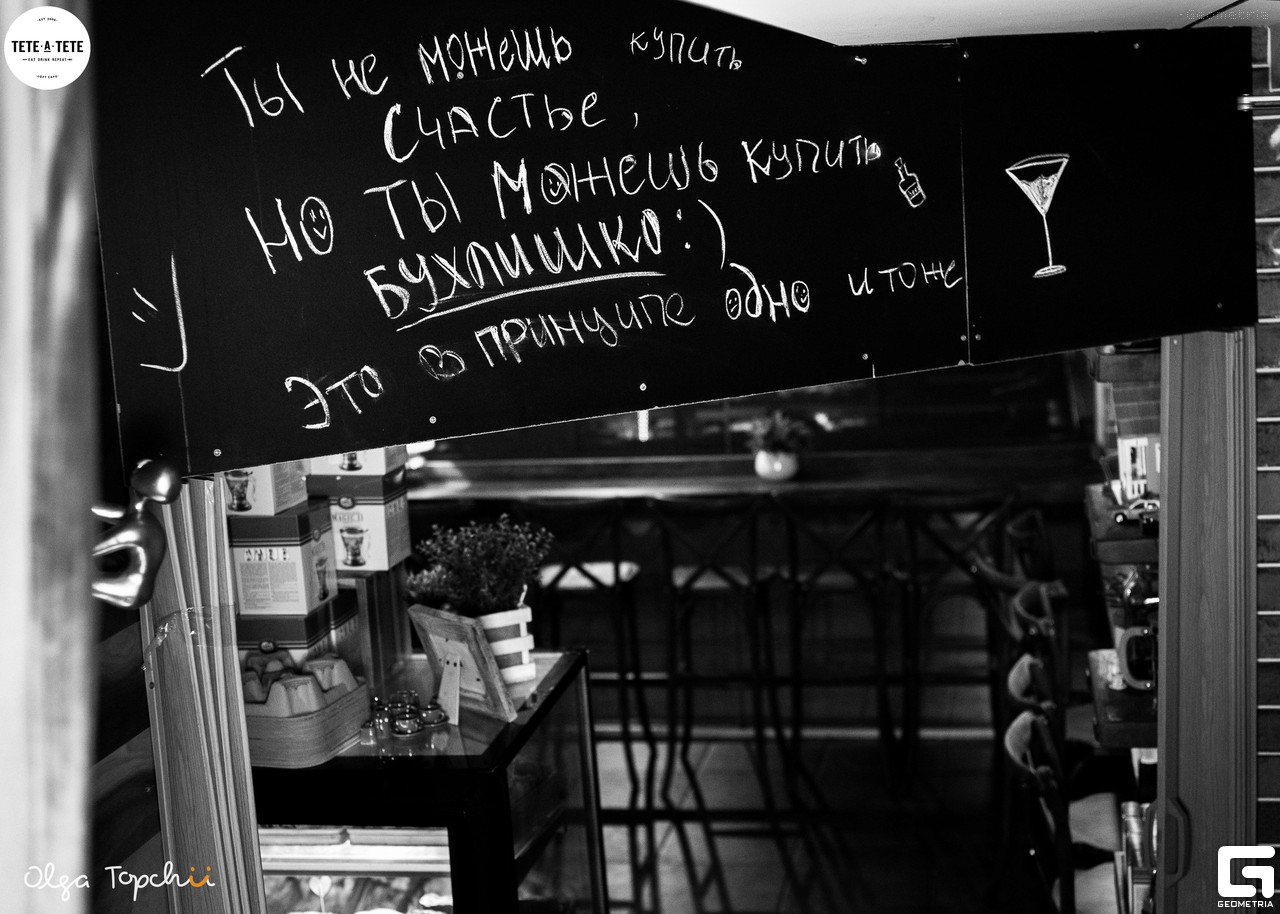 EST 2009
TETE-A-TETE
EAT DRINK REPEAT
Geometria
Ты не можешь купить
Счастье,
но ты можешь купить
Бухлишко :)
Это в принципе одно и тоже
Olga Topchii
GEOMETRIA